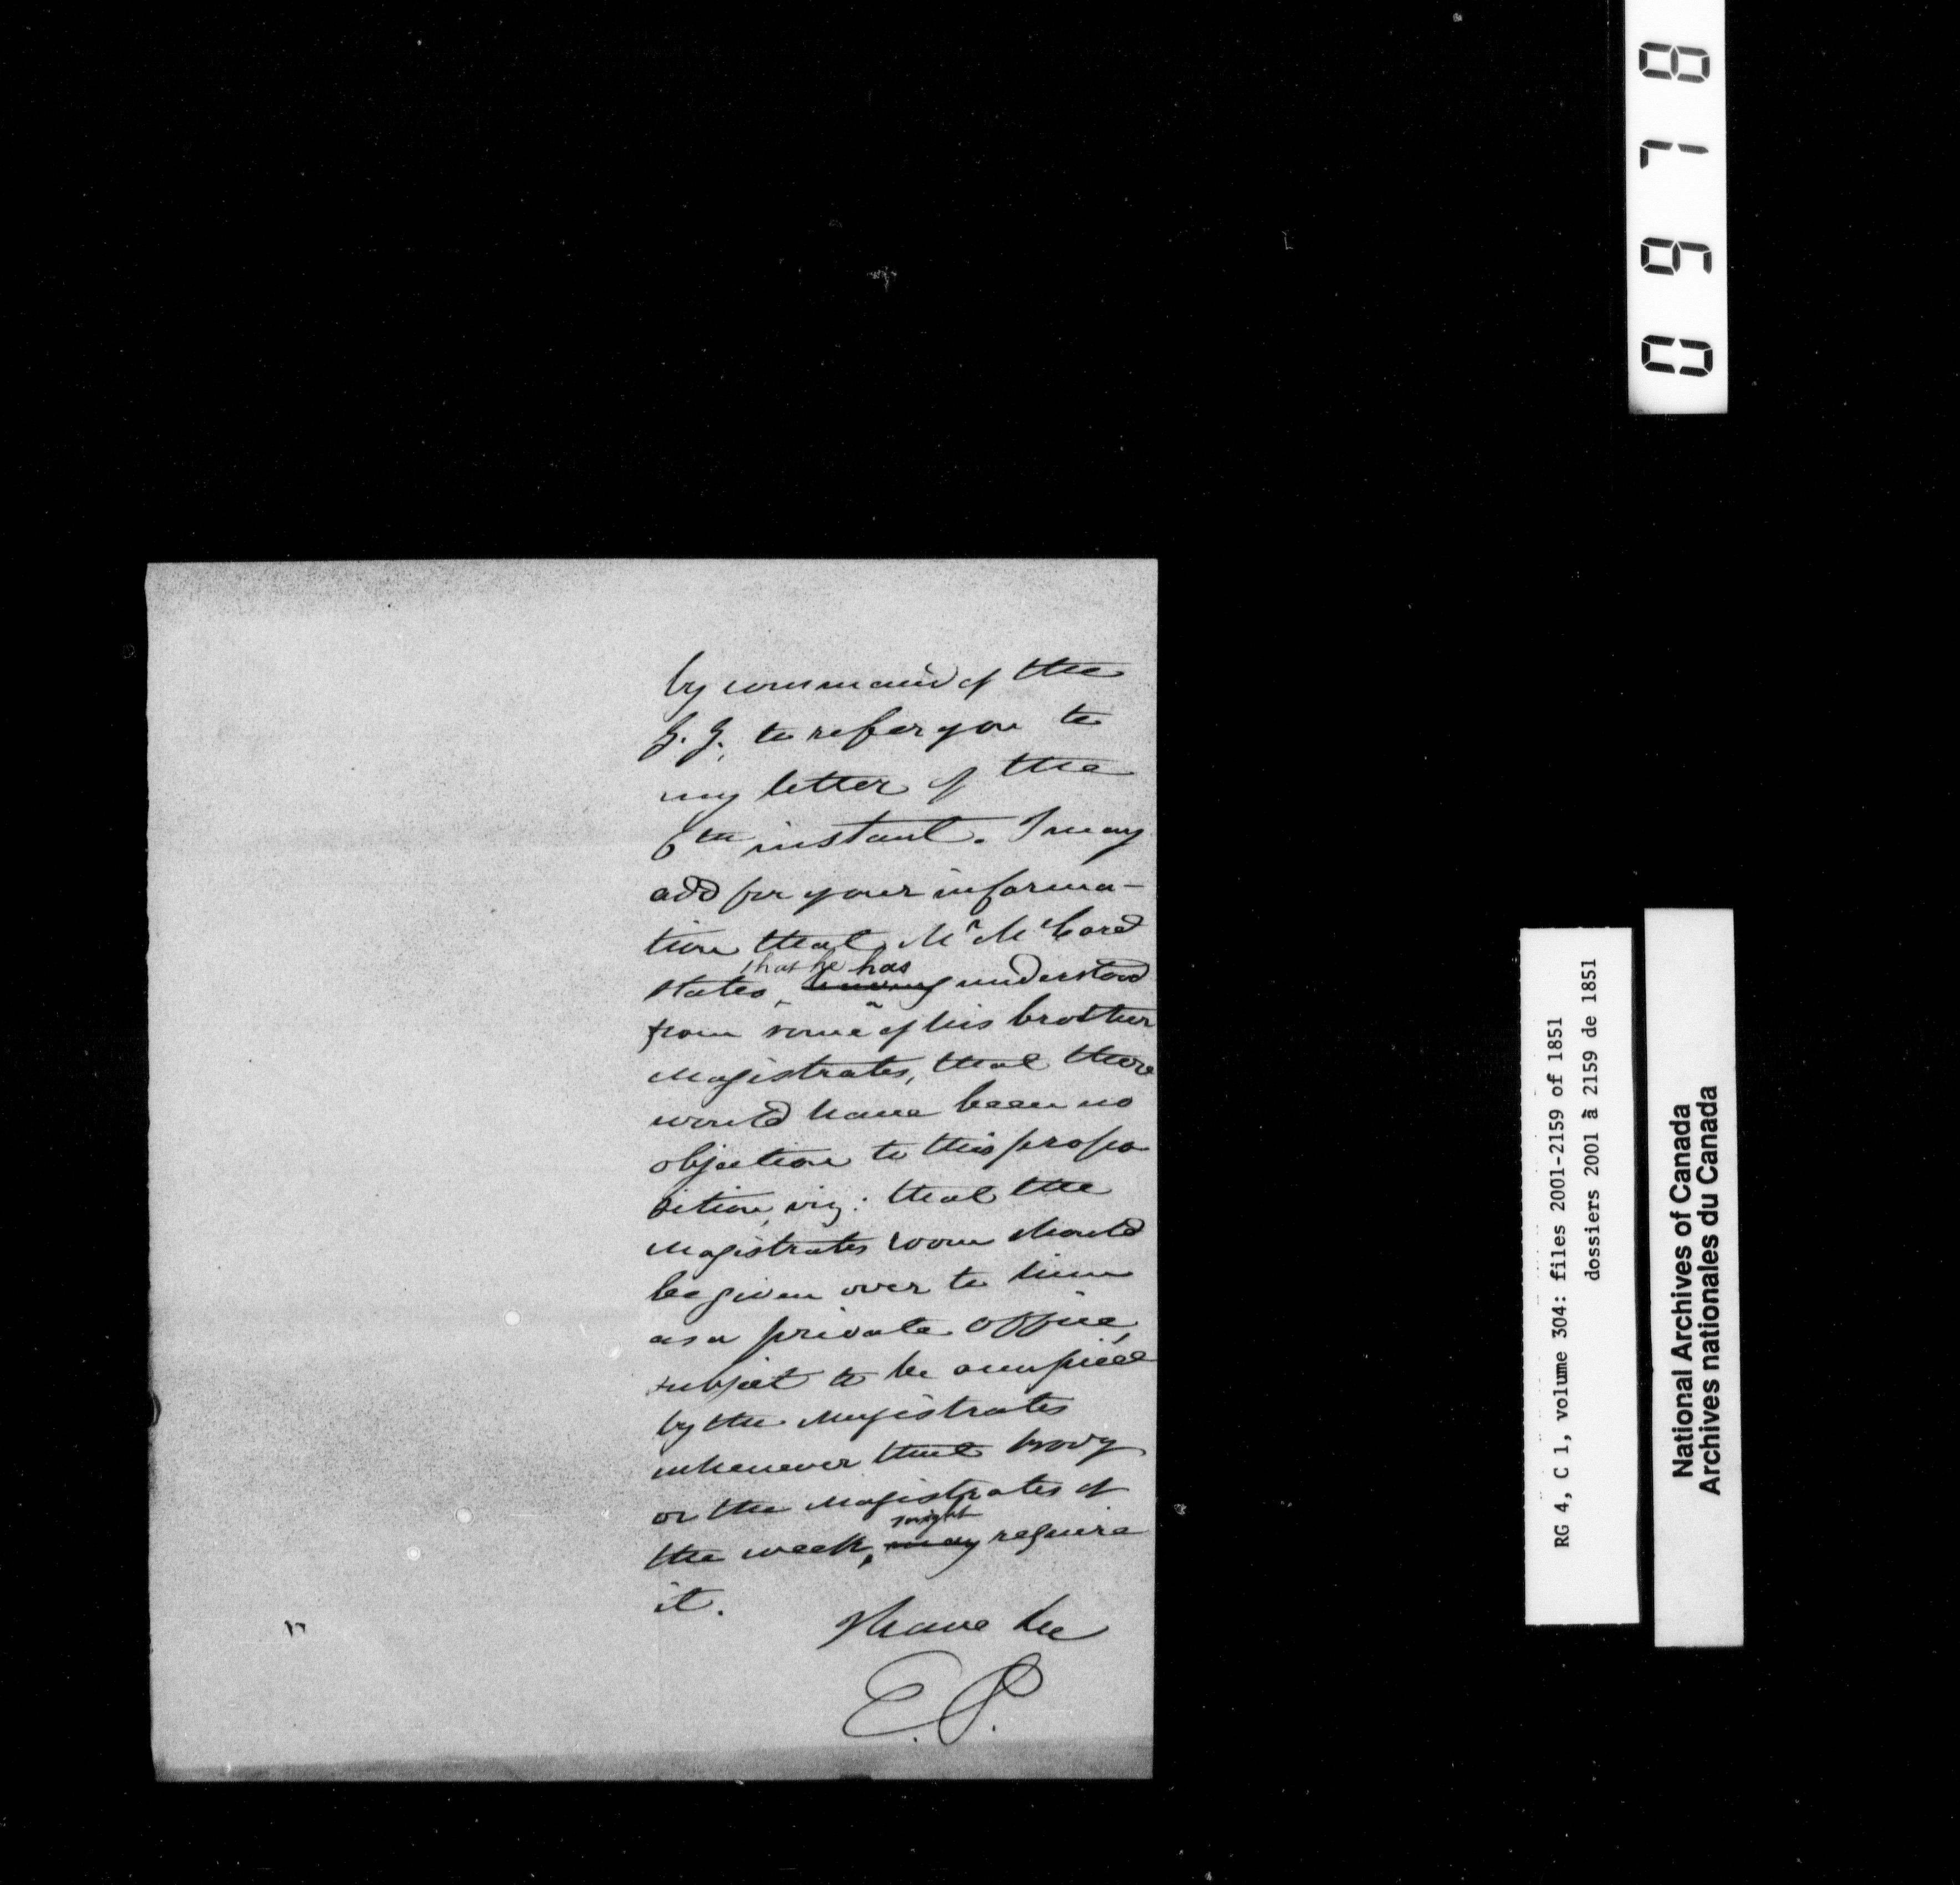 by command of the
G. G. to refer you to
my letter of the
6th instant. I may
add for your informa-
tion that Mr McCord
that he has
states, having understood
from some of his brother
Magistrates, that there
would have been no
objection to this propo
sition, viz: that the
Magistrates room should
be given over to him
as a private office,
subject to be occupied
by the Magistrates
whenever that body
or the Magistrates of
might
the week, may require
it.
I have &c
E. P.
0978
RG 4, C 1, volume 304: files 2001-2159 of 1851
dossiers 2001 à 2159 de 1851
National Archives of Canada
Archives nationales du Canada